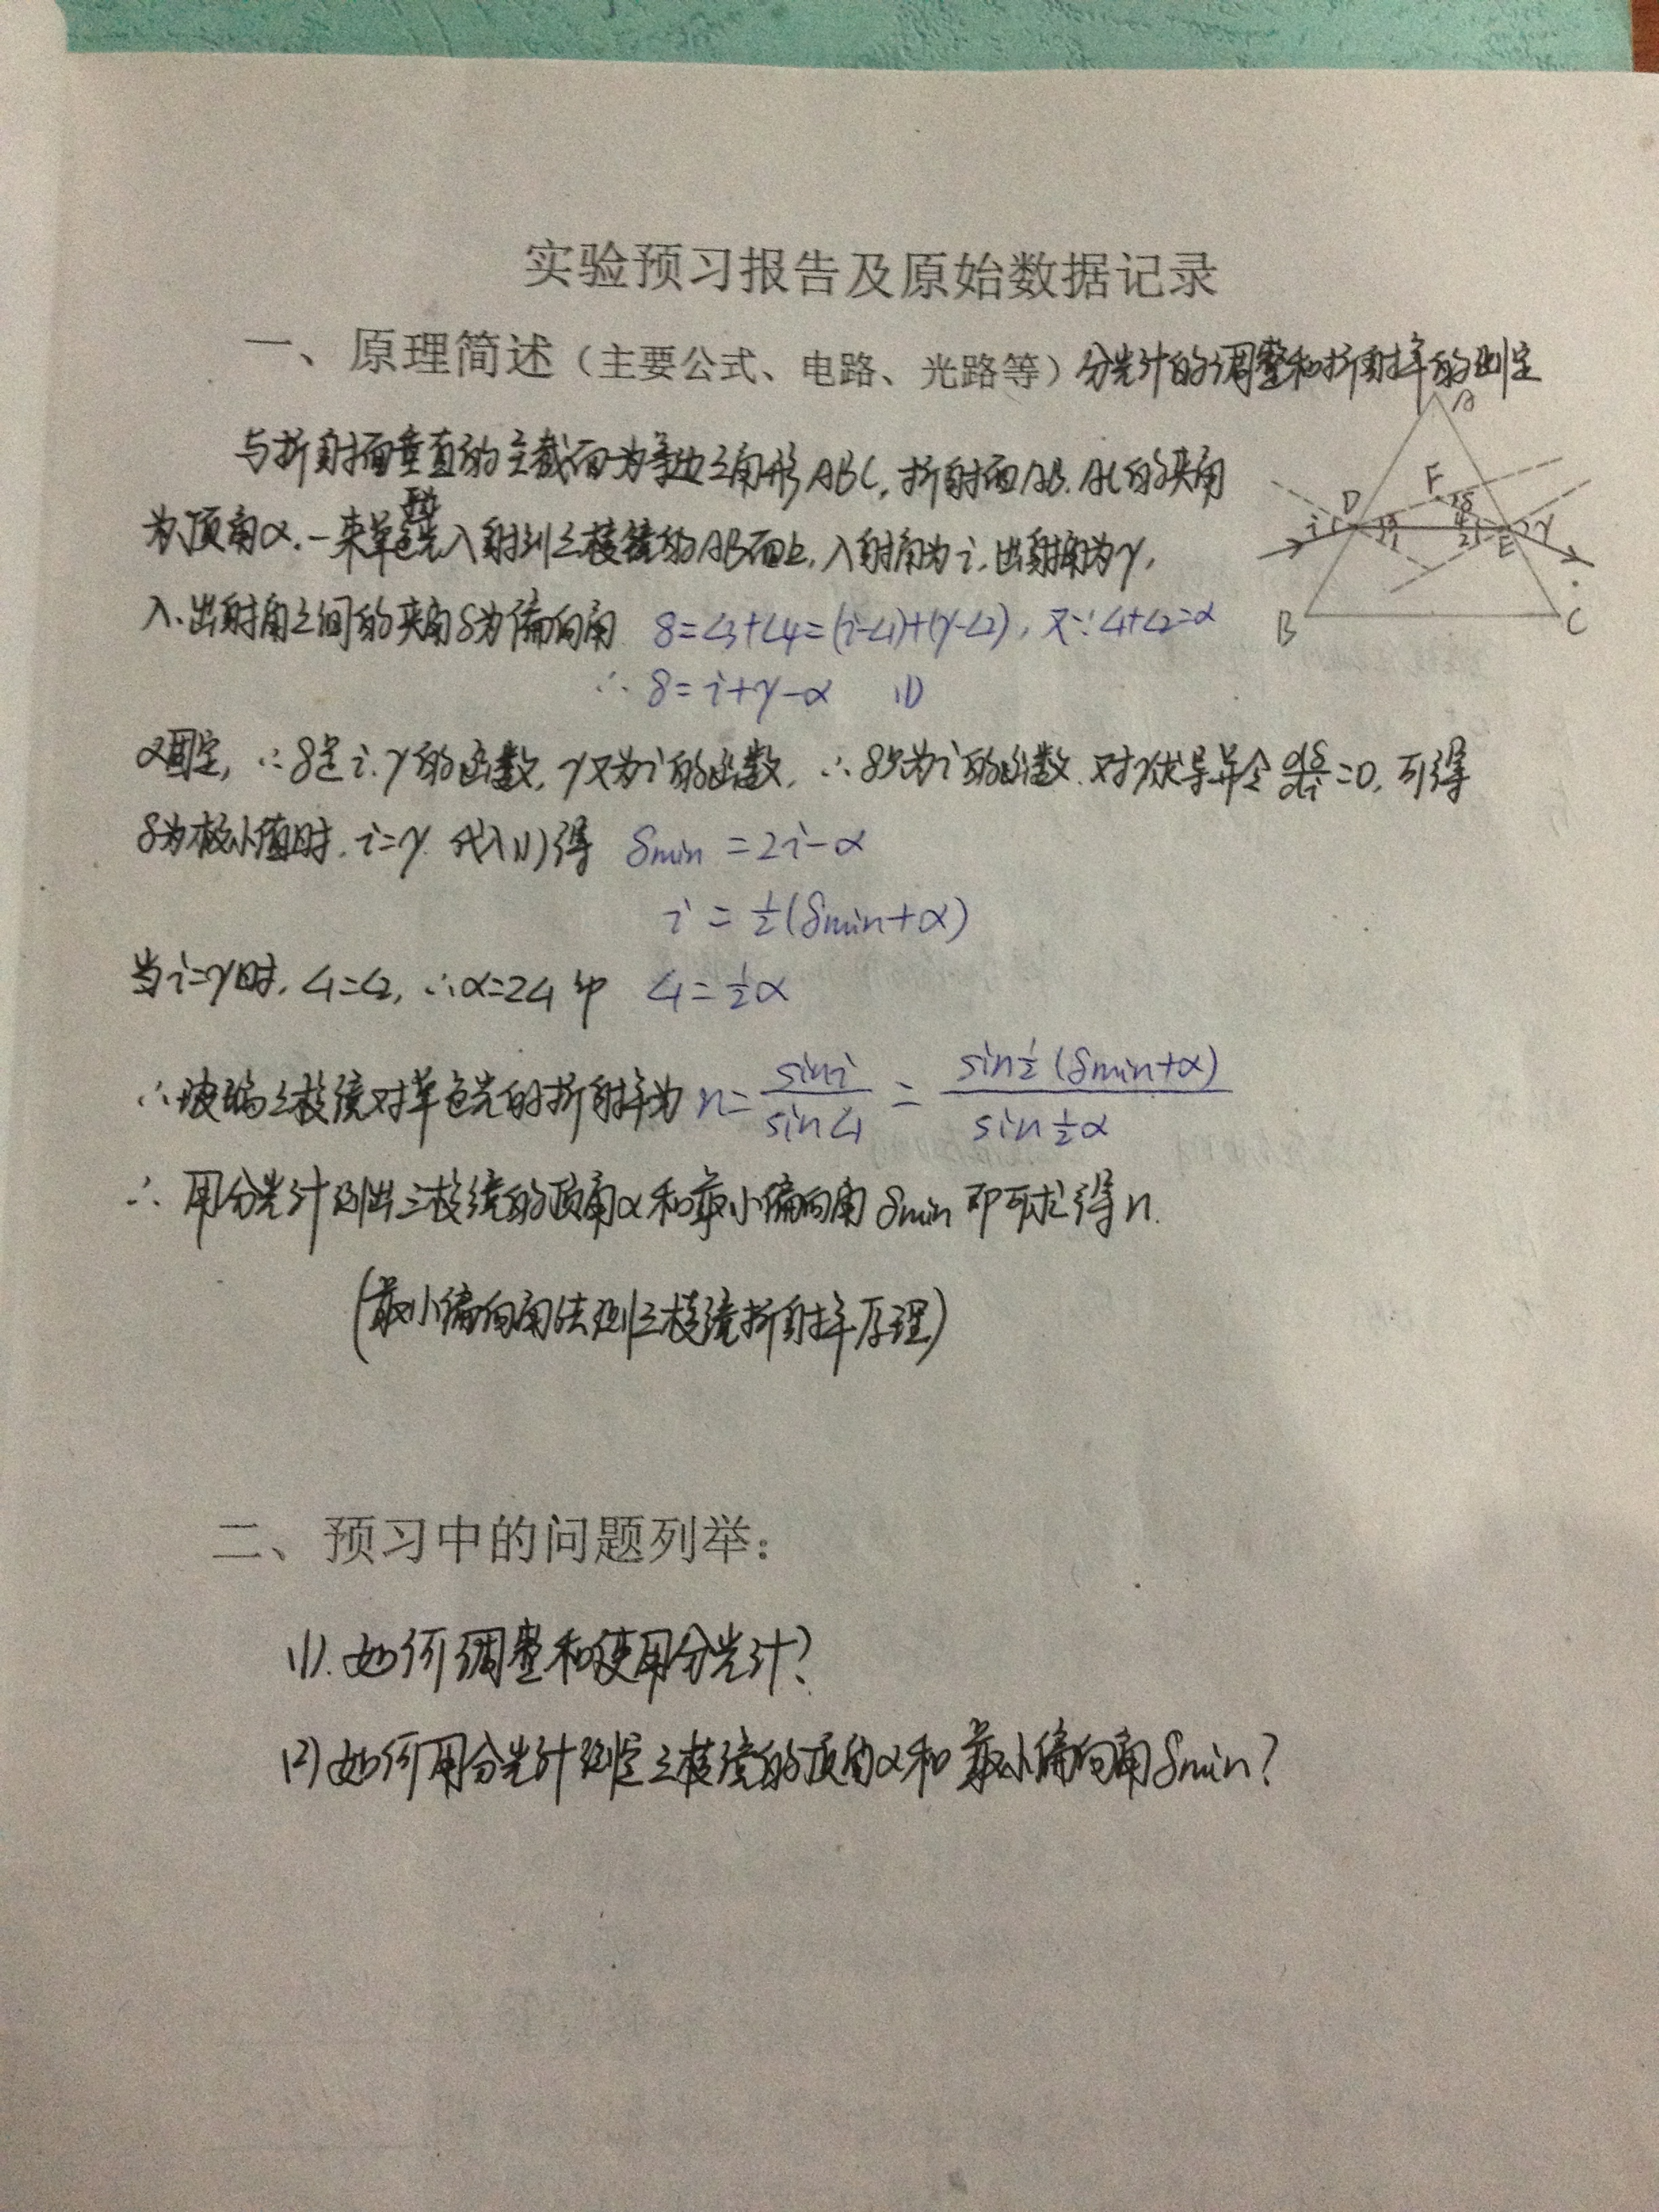 实验预习报告及原始数据记录
一、原理简述（主要公式、电路、光路等）分光计的调整和折射率的测定
与折射面垂直的主截面为等边三角形ABC, 折射面AB、AC的夹角
为顶角α. 一束单色光入射到三棱镜的AB面上, 入射角为i, 出射角为γ,
入、出射角之间的夹角δ为偏向角 δ=∠3+∠4=(i-∠1)+(γ-∠2), 又∵∠1+∠2=α
∴ δ=i+γ-α (1)
α固定, ∴δ是i、γ的函数, γ又为i的函数, ∴δ只为i的函数. 对γ求导并令 dδ/di=0, 可得
δ为极小值时, i=γ 代入(1)得 δmin =2i-α
i = ½(δmin+α)
当i=γ时, ∠1=∠2, ∴α=2∠1 即 ∠1=½α
∴玻璃三棱镜对单色光的折射率为 n= sini/sin∠1 = sin½(δmin+α)/sin½α
∴ 用分光计测出三棱镜的顶角α和最小偏向角δmin即可求得n.
(最小偏向角法测三棱镜折射率原理)
二、预习中的问题列举：
(1). 如何调整和使用分光计?
(2) 如何用分光计测定三棱镜的顶角α和最小偏向角δmin?
A
F
D
δ
i
3
1
4
2
E
γ
B
C